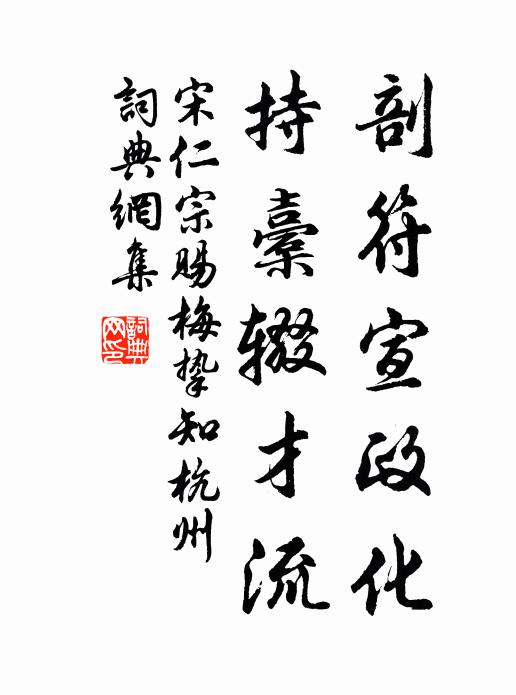 剖符宣政化
持橐辍才流
宋仁宗赐梅挚知杭州
詞典網集
詞典网印